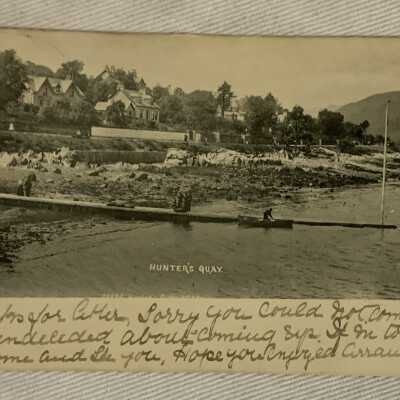 HUNTER'S QUAY.
for Letter, Sorry you could not com
undecided about coming up. If Im to
ome and See you, Hope you Enjoyed Arran